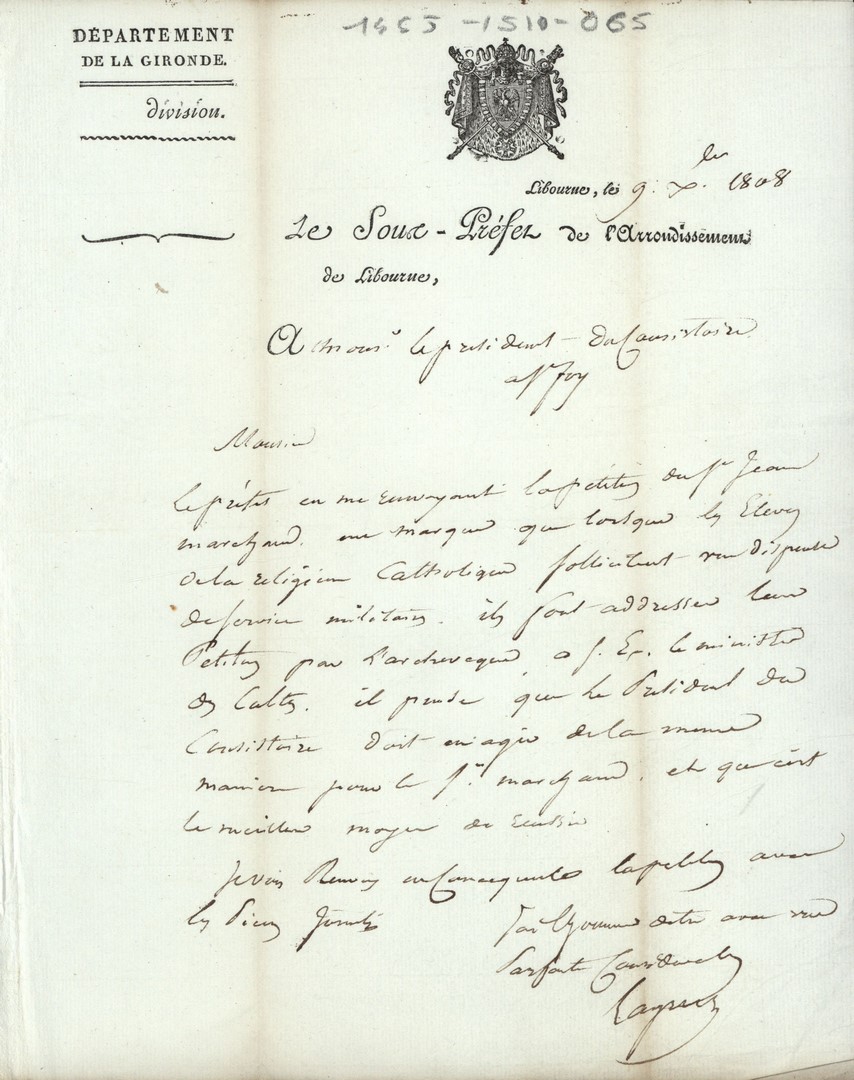 1453-1510-065
DÉPARTEMENT
DE LA GIRONDE.
division.
Libourne, le 9. Xbr 1808
Le Sous-Préfet de l'Arrondissement
de Libourne,
A Monsr le president du Consistoire
a Ste foy
Monsieur
Le préfet en me renvoyant la pétition du Sr Jean
marchand, me marque que lorsque les Eleves
de la religion Catholique sollicitent une dispense
de service militaire, ils font addresser leur
Petition par l'archeveque a S. Ex. le ministre
des Cultes. il pense que le President du
Consistoire doit en agir de la meme
maniere pour le Sr. marchand, et que c'est
le meilleur moyen de reussir
Je vous Renvoy en Consequence la petition avec
les Pieces Jointes J'ai l'honneur d'etre avec une
Parfaite Consideration